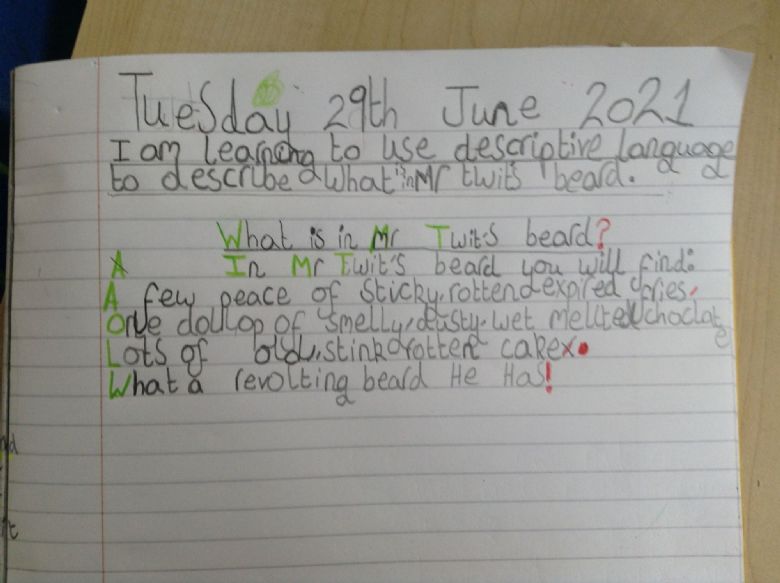 Tuesday 29th June 2021
I am learning to use descriptive language
to describe what is in Mr twit's beard.
What is in Mr Twit's beard?
In Mr Twit's beard you will find:
A few peace of sticky, rotten expired
One dollop of smelly, dusty, wet choclate
Lots of old, stink rotten cake.
What a revolting beard He Has!